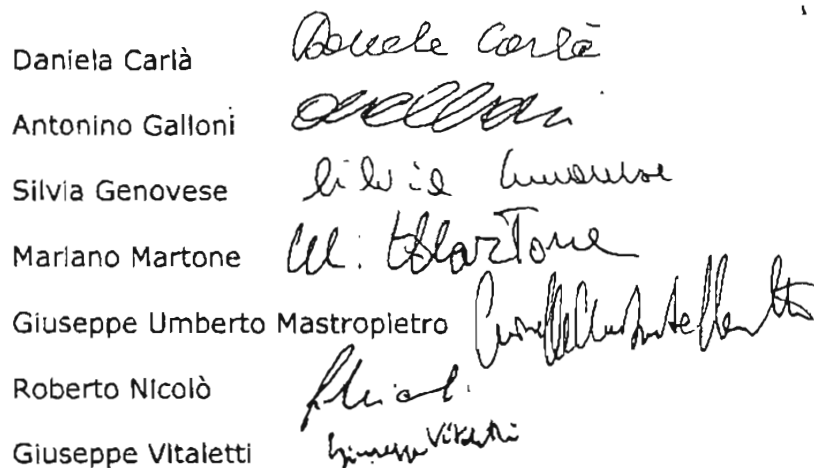 Daniela Carlà Daniela Carlà
Antonino Galloni
Silvia Genovese Silvia Genovese
Mariano Martone M. Martone
Giuseppe Umberto Mastropietro
Roberto Nicolò
Giuseppe Vitaletti Giuseppe Vitaletti